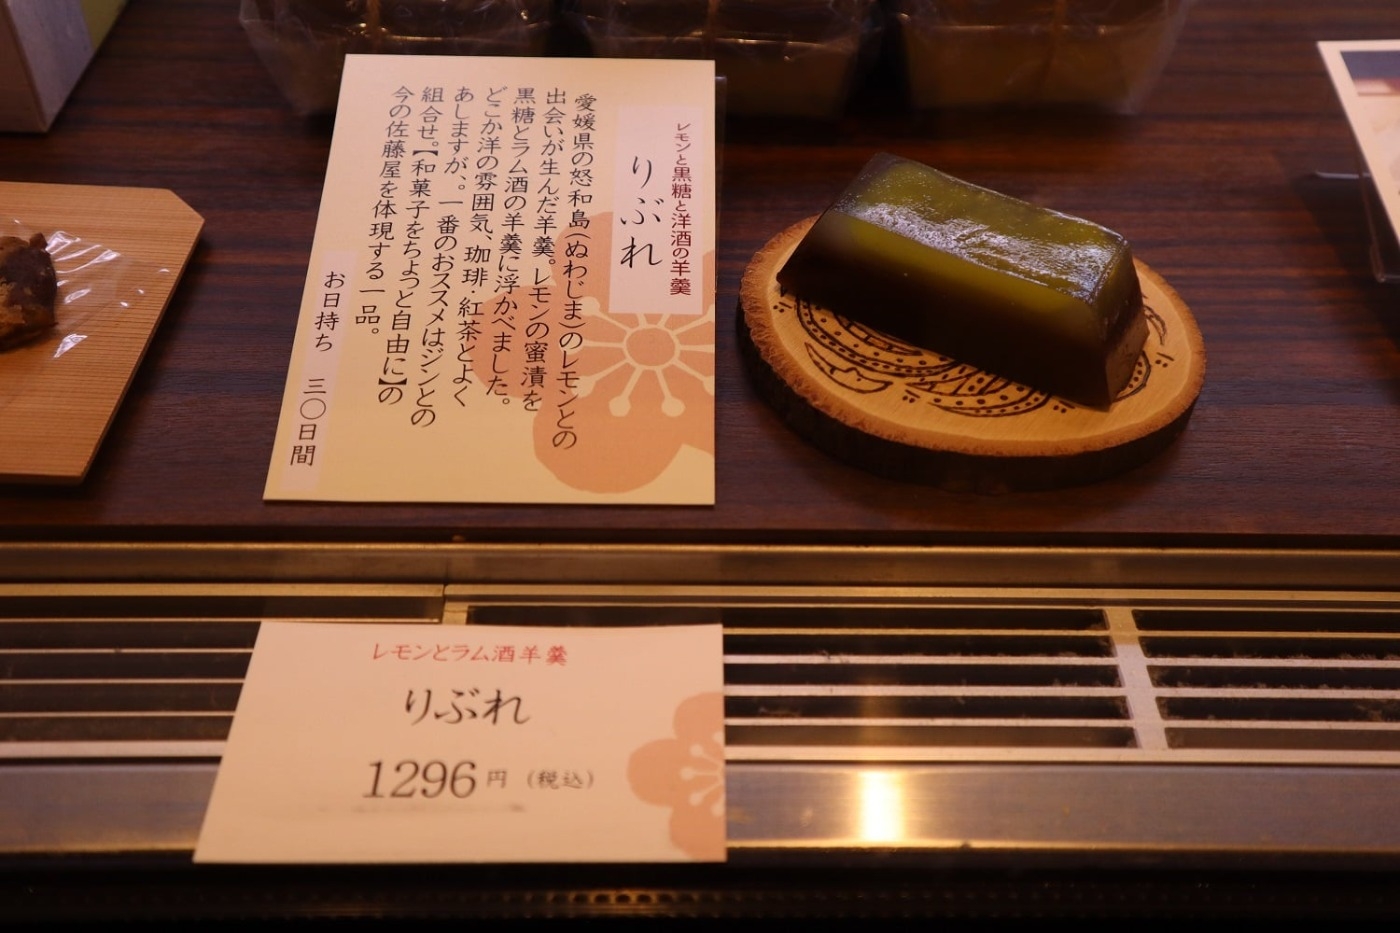 レモンと黒糖と洋酒の羊羹
りぶれ
愛媛県の怒和島（ぬわじま）のレモンとの
出会いが生んだ羊羹。レモンの蜜漬を
黒糖とラム酒の羊羹に浮かべました。
どこか洋の雰囲気、珈琲・紅茶とよく
あしますが、。一番のおススメはジンとの
組合せ。【和菓子をちょっと自由に】の
今の佐藤屋を体現する一品。
お日持ち 三〇日間
レモンとラム酒羊羹
りぶれ
1296円（税込）